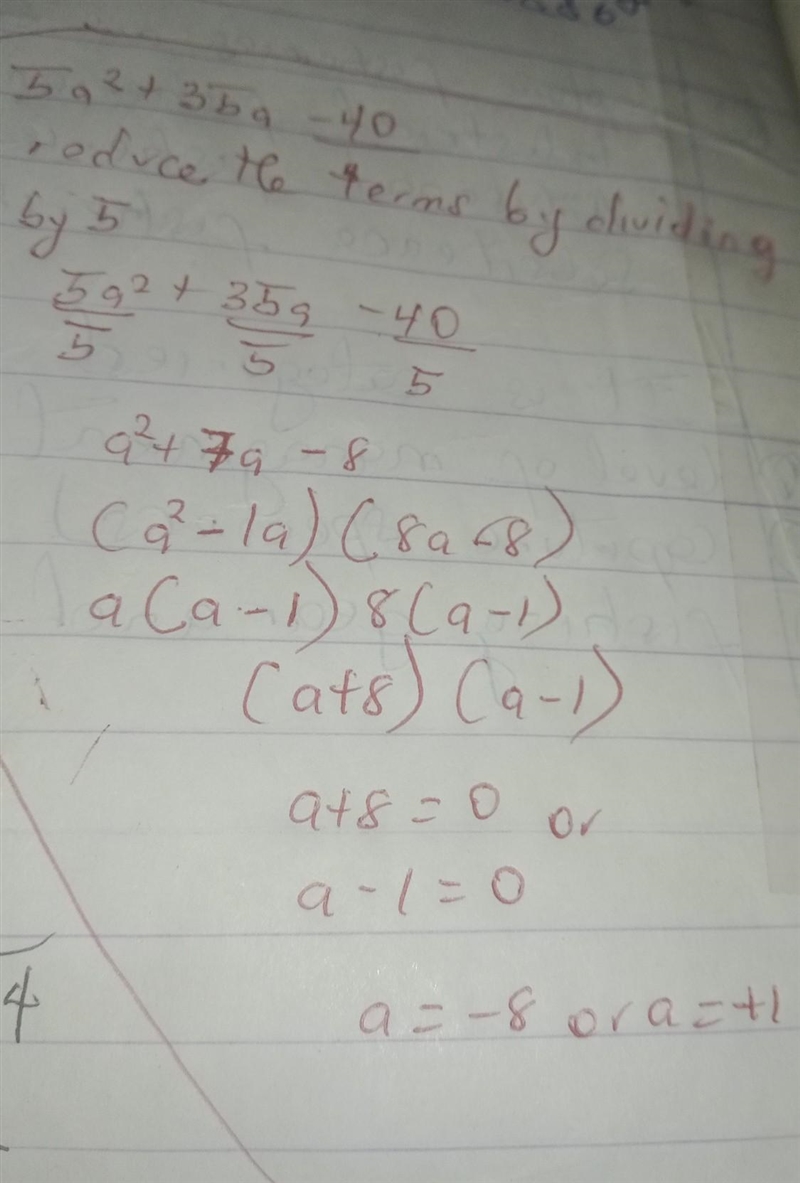 5a² + 35a - 40
reduce the terms by dividing
by 5
5a²/5 + 35a/5 - 40/5
a² + 7a - 8
(a² - 1a) (8a - 8)
a(a - 1) 8(a - 1)
(a+8) (a-1)
a+8 = 0 or
a - 1 = 0
4
a = -8 or a = +1